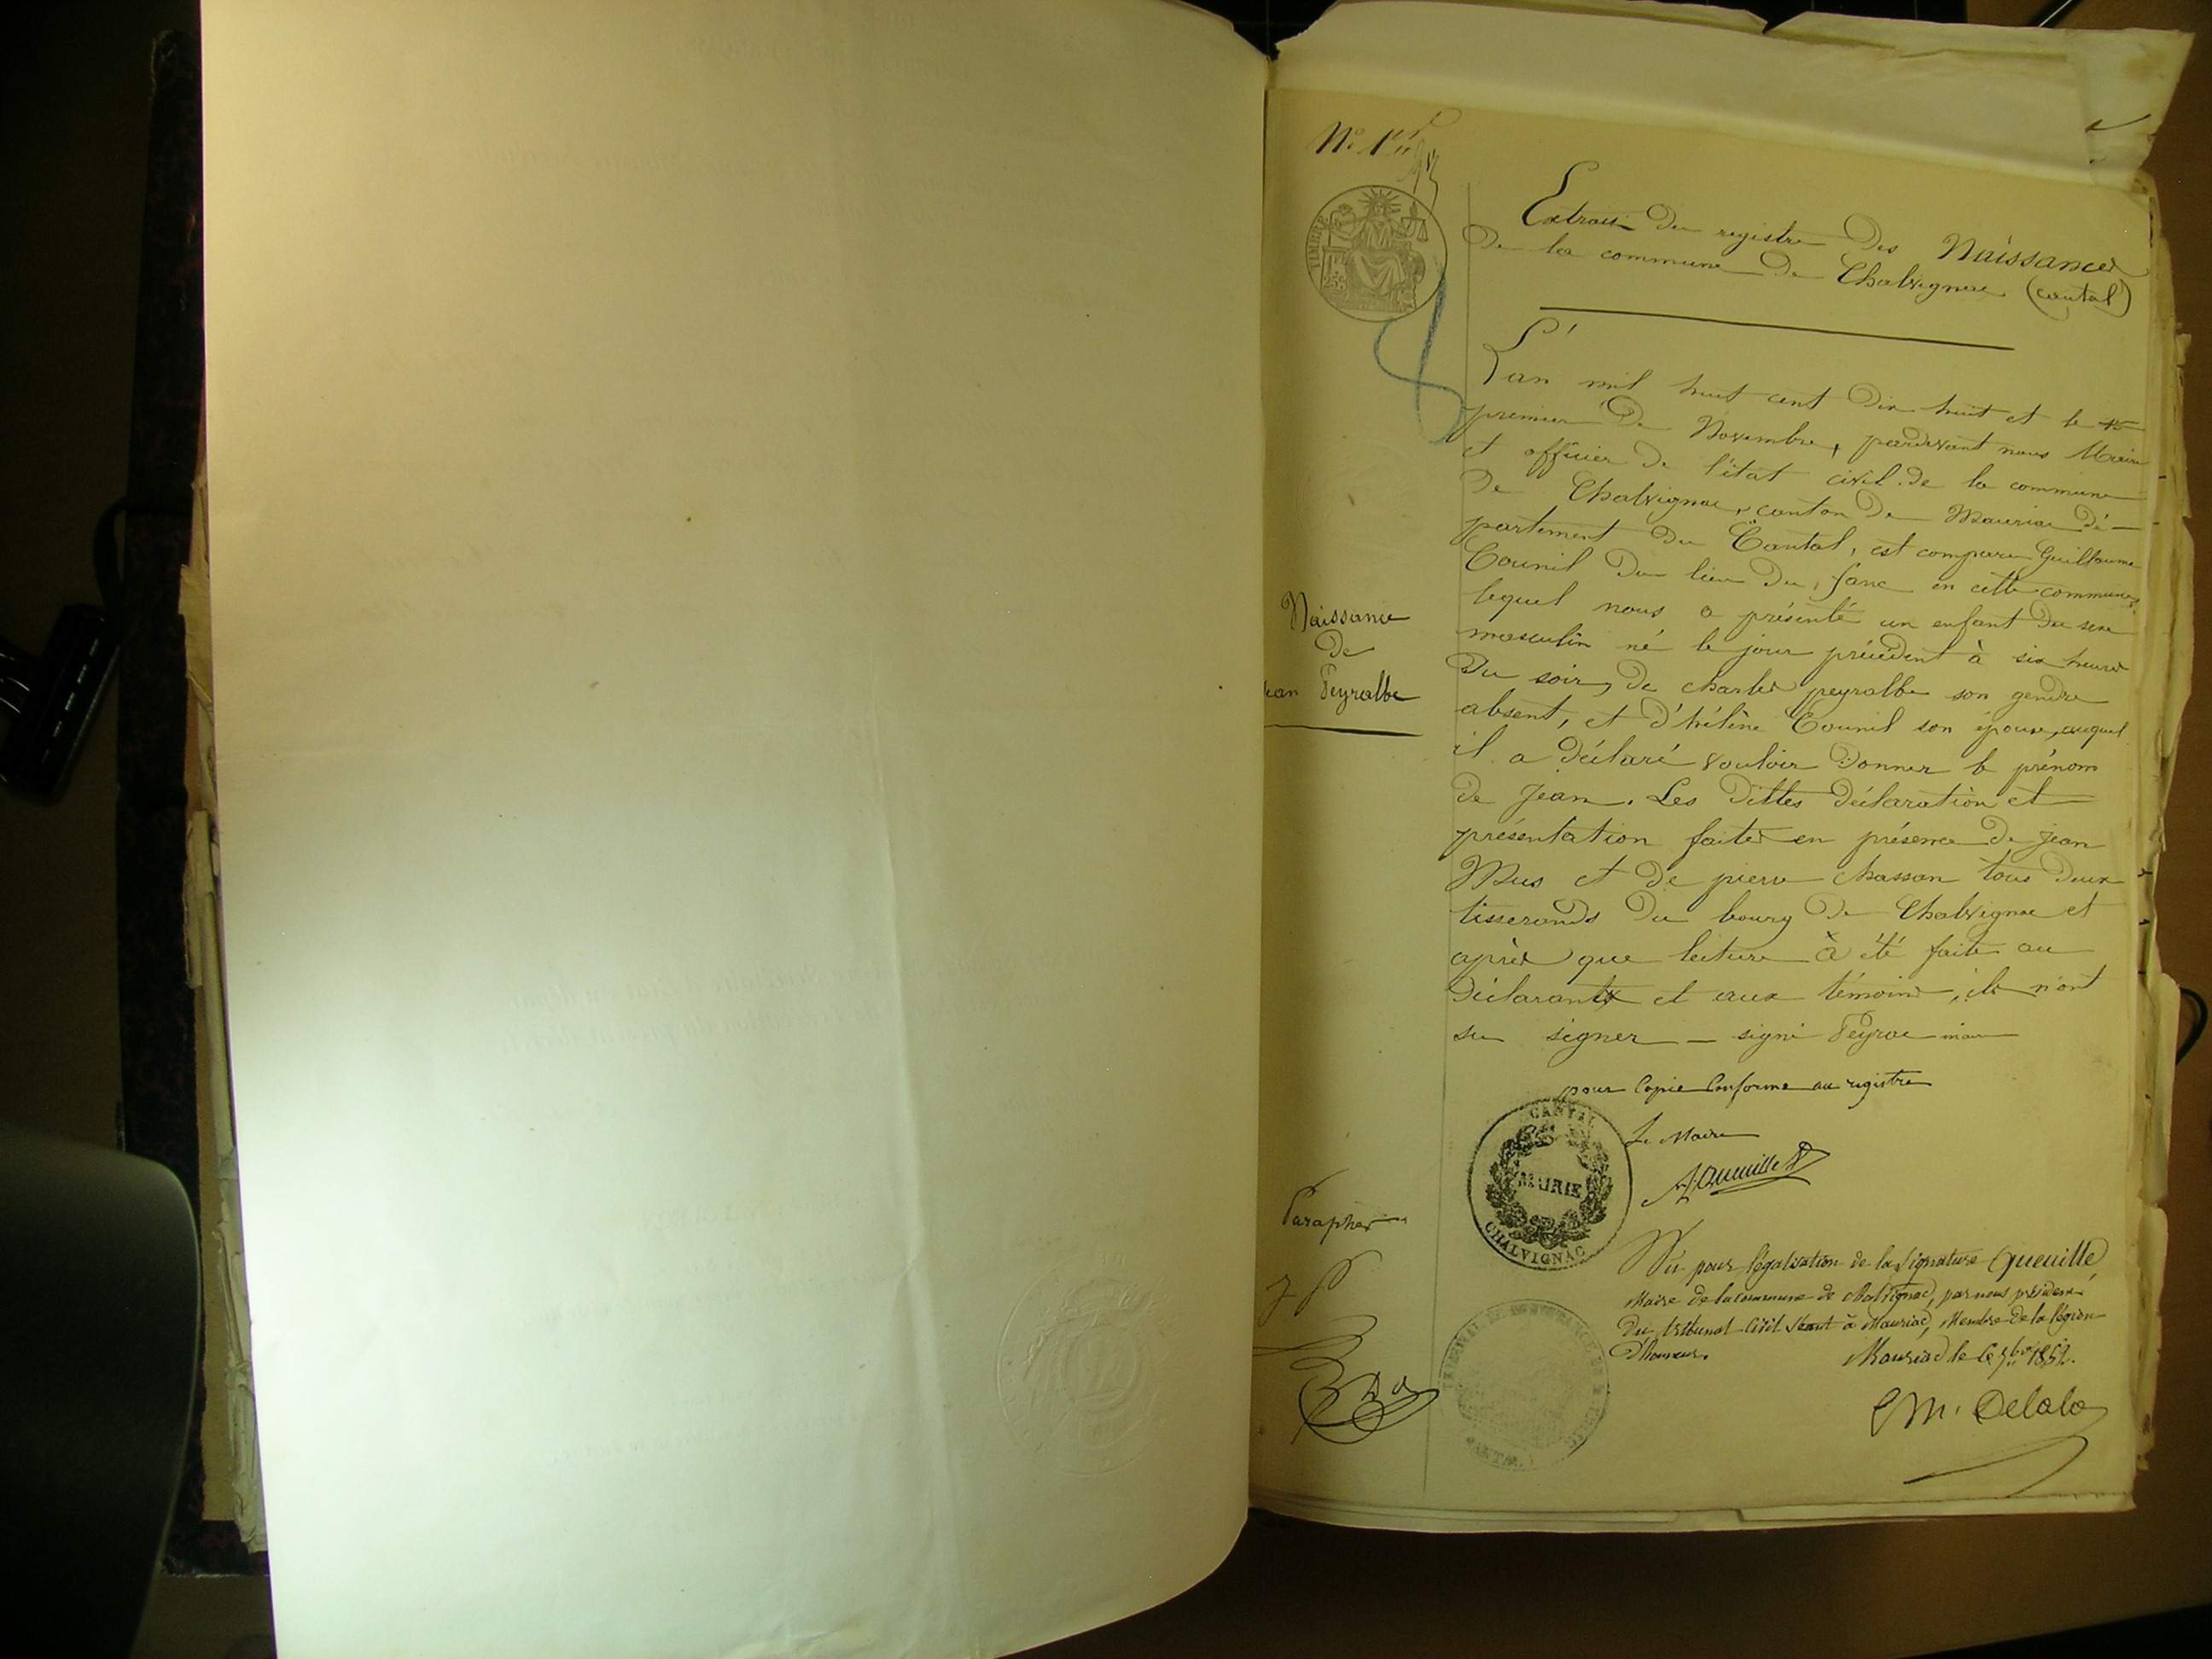 N° 1er
TIMBRE
25c
Extrait du registre des Naissances
de la commune de Chalvignac (cantal)
L'an mil huit cent dix huit et le
premier de Novembre, pardevant nous Maire
et officier de l'état civil de la commune
de Chalvignac, canton de Mauriac dé-
partement du Cantal, est comparu Guillaume
Counil du lieu du fanc en cette commune,
lequel nous a présenté un enfant du sexe
masculin né le jour précédent à six heures
du soir, de charles peyralbe son gendre
absent, et d'hélène Counil son épouse, auquel
il a déclaré vouloir donner le prénom
de Jean. Les dittes déclaration et
présentation faites en présence de jean
Mus et de pierre chassan tous deux
tisserands du bourg de Chalvignac et
après que lecture à été faite au
déclarant et aux témoins, ils n'ont
su signer — signé Peyrac
Naissance
de
ean Peyralbe
pour Copie Conforme au registre
Le Maire
Queuille
CANTAL
MAIRIE
CHALVIGNAC
Paraphes
Vu pour légalisation de la signature Queuille
Maire de la commune de Chalvignac, par nous président
du tribunal civil séant à Mauriac, Membre de la légion
d'honneur. Mauriac le 6 7bre
M. Delalo